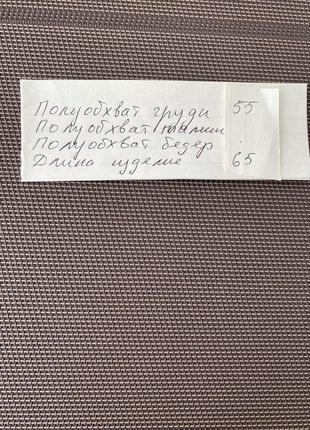 Полуобхват груди 55
Полуобхват талии
Полуобхват бедер .
Длина изделие 65